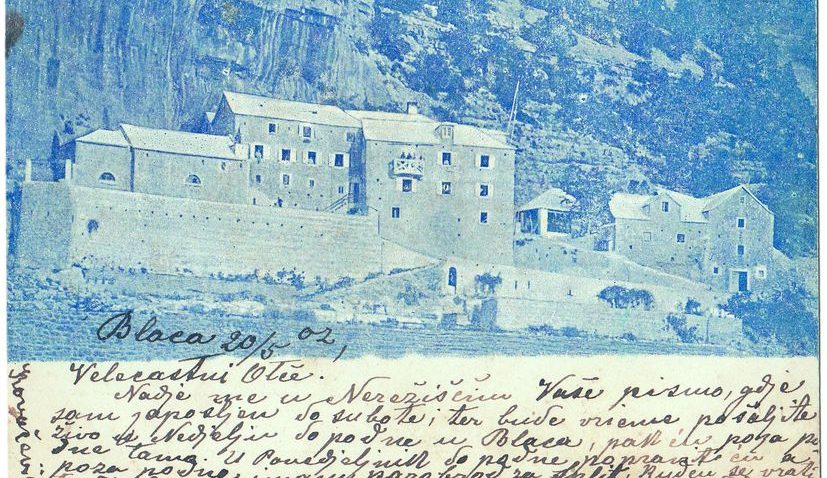 Blaca 20/5 02,
Velecastni Otče.
Nadje me u Nerežišćim Vaše pismo, gdje
sam zaposljen do subote; ter bude vrieme pošaljite
živo u Nedjelju do podne u Blaca, pak ću poza po
dne tamo. U Ponedjeljnik do podne popravit ću a
poza podne, imam parobrod za Split. Budem se vrati